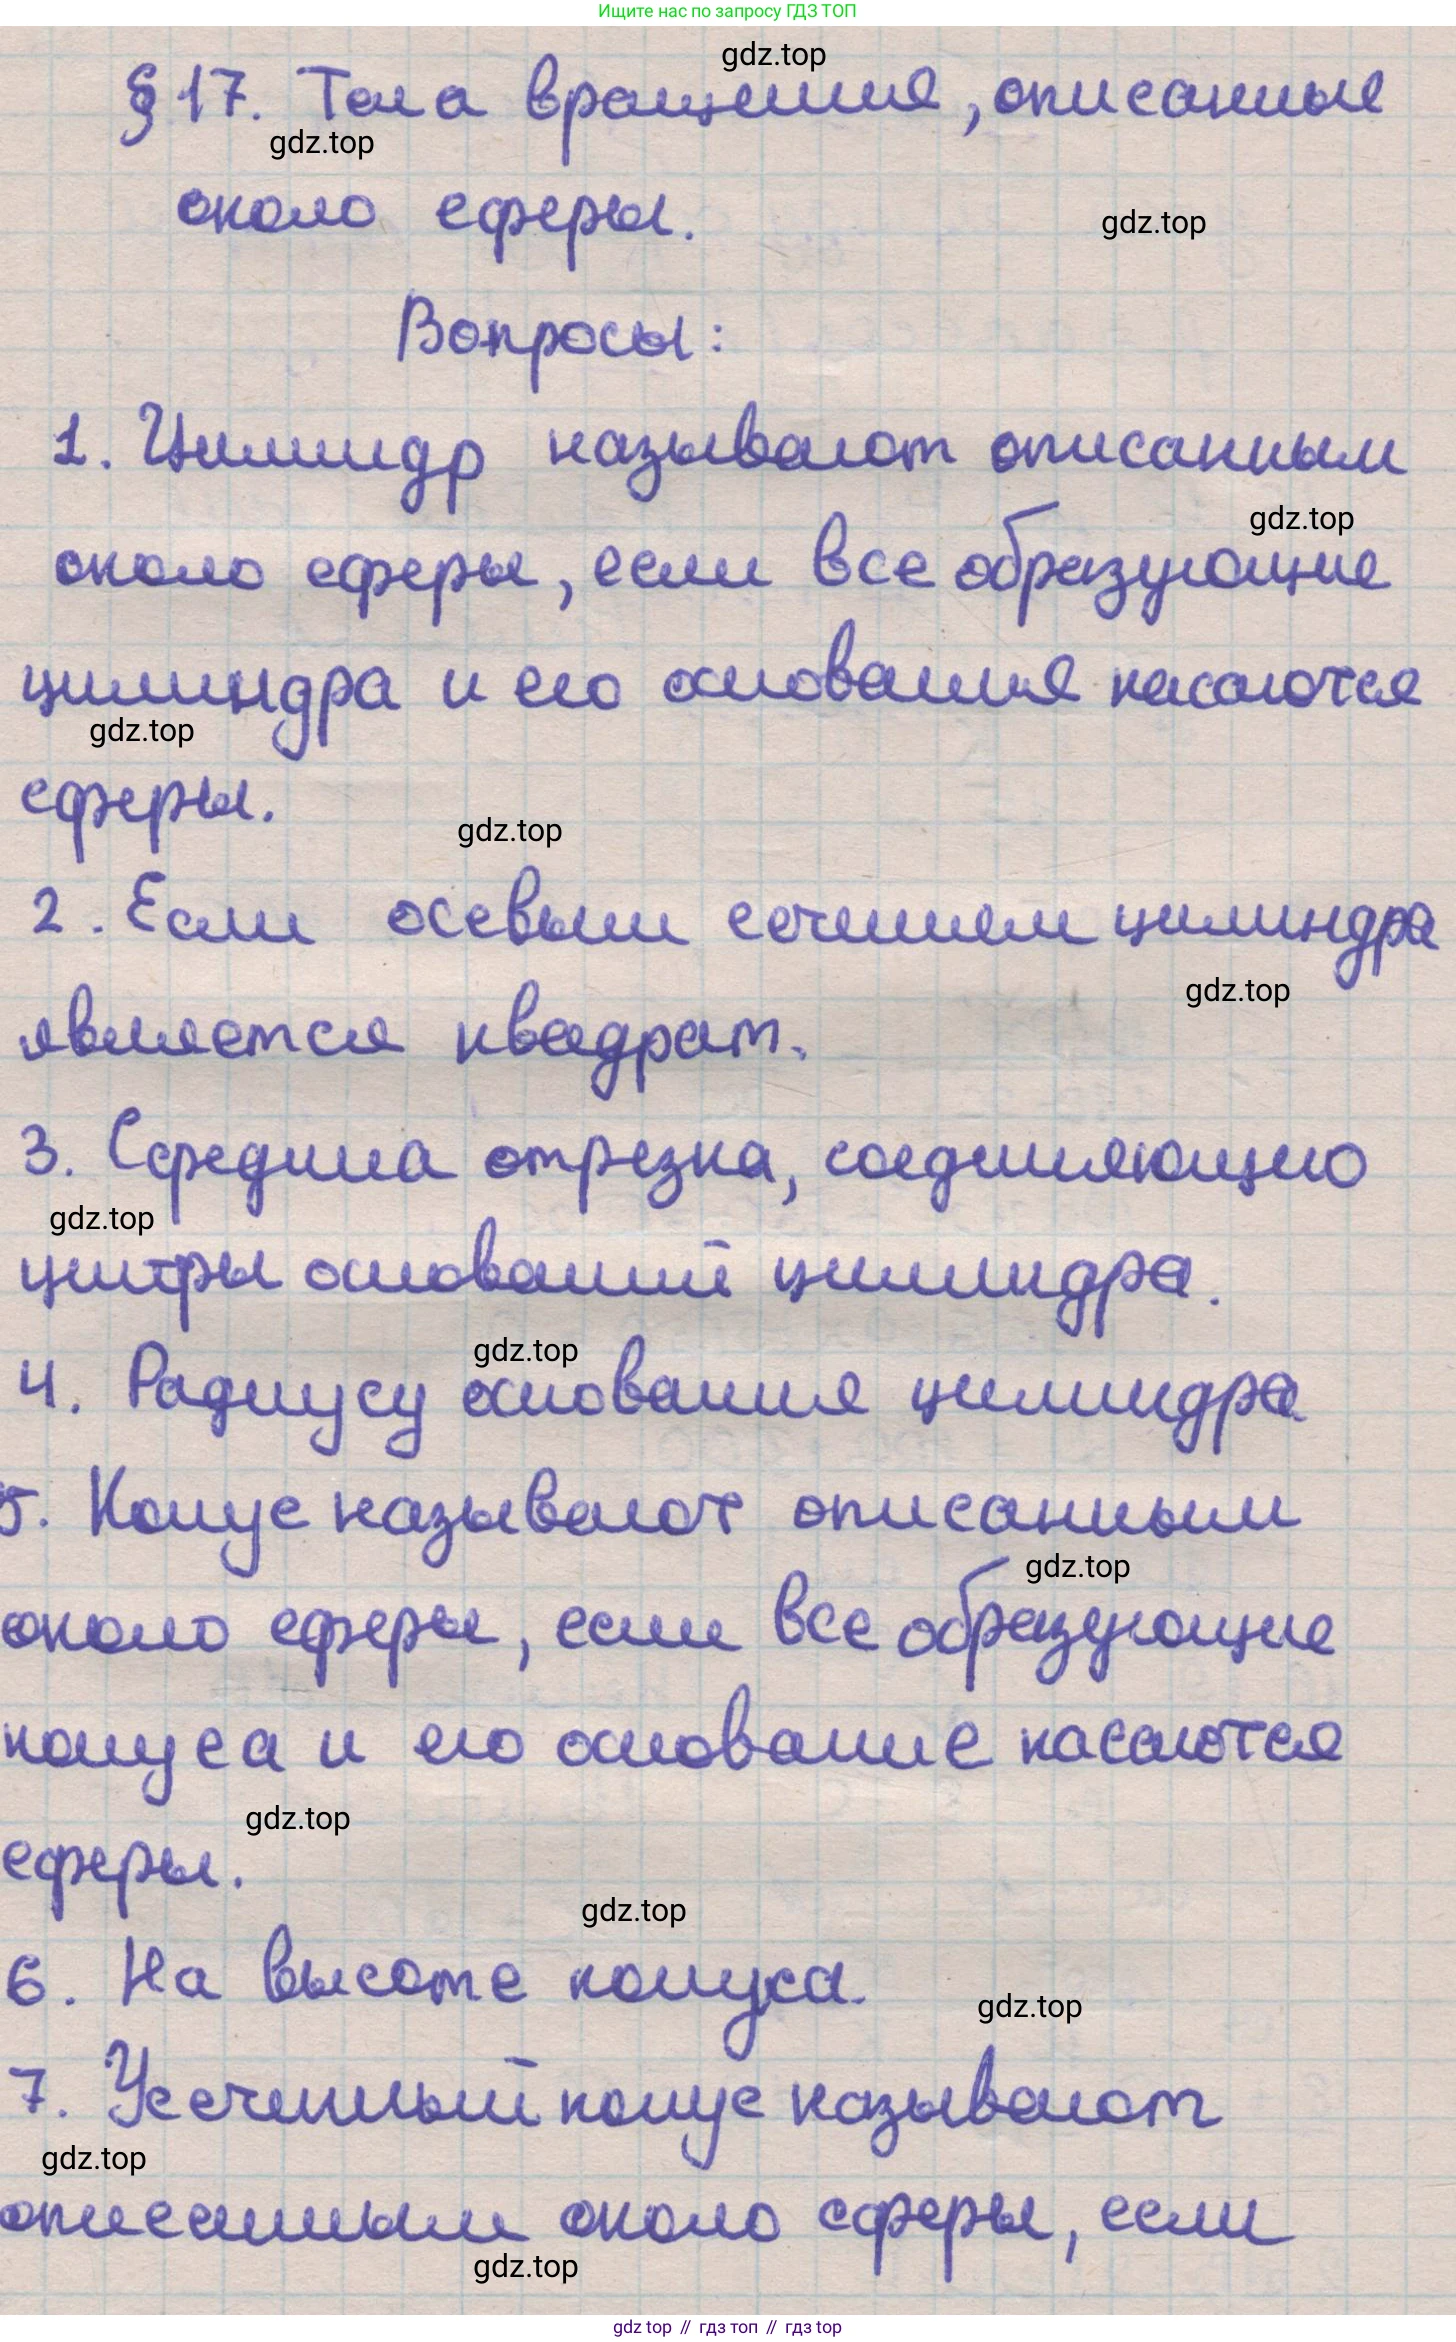 Ищите нас по запросу ГДЗ ТОП
gdz.top
§ 17. Тела вращения, описанные
gdz.top
около сферы.
gdz.top
Вопросы:
1. Цилиндр называют описанным
gdz.top
около сферы, если все образующие
цилиндра и его основания касаются
gdz.top
сферы.
gdz.top
2. Если осевым сечением цилиндра
gdz.top
является квадрат.
3. Середина отрезка, соединяющего
gdz.top
центры оснований цилиндра.
gdz.top
4. Радиусу основания цилиндра
5. Конус называют описанным
gdz.top
около сферы, если все образующие
конуса и его основание касаются
gdz.top
сферы.
gdz.top
6. На высоте конуса.
gdz.top
7. Усеченный конус называют
gdz.top
описанным около сферы, если
gdz.top
gdz top // гдз топ // gdz top